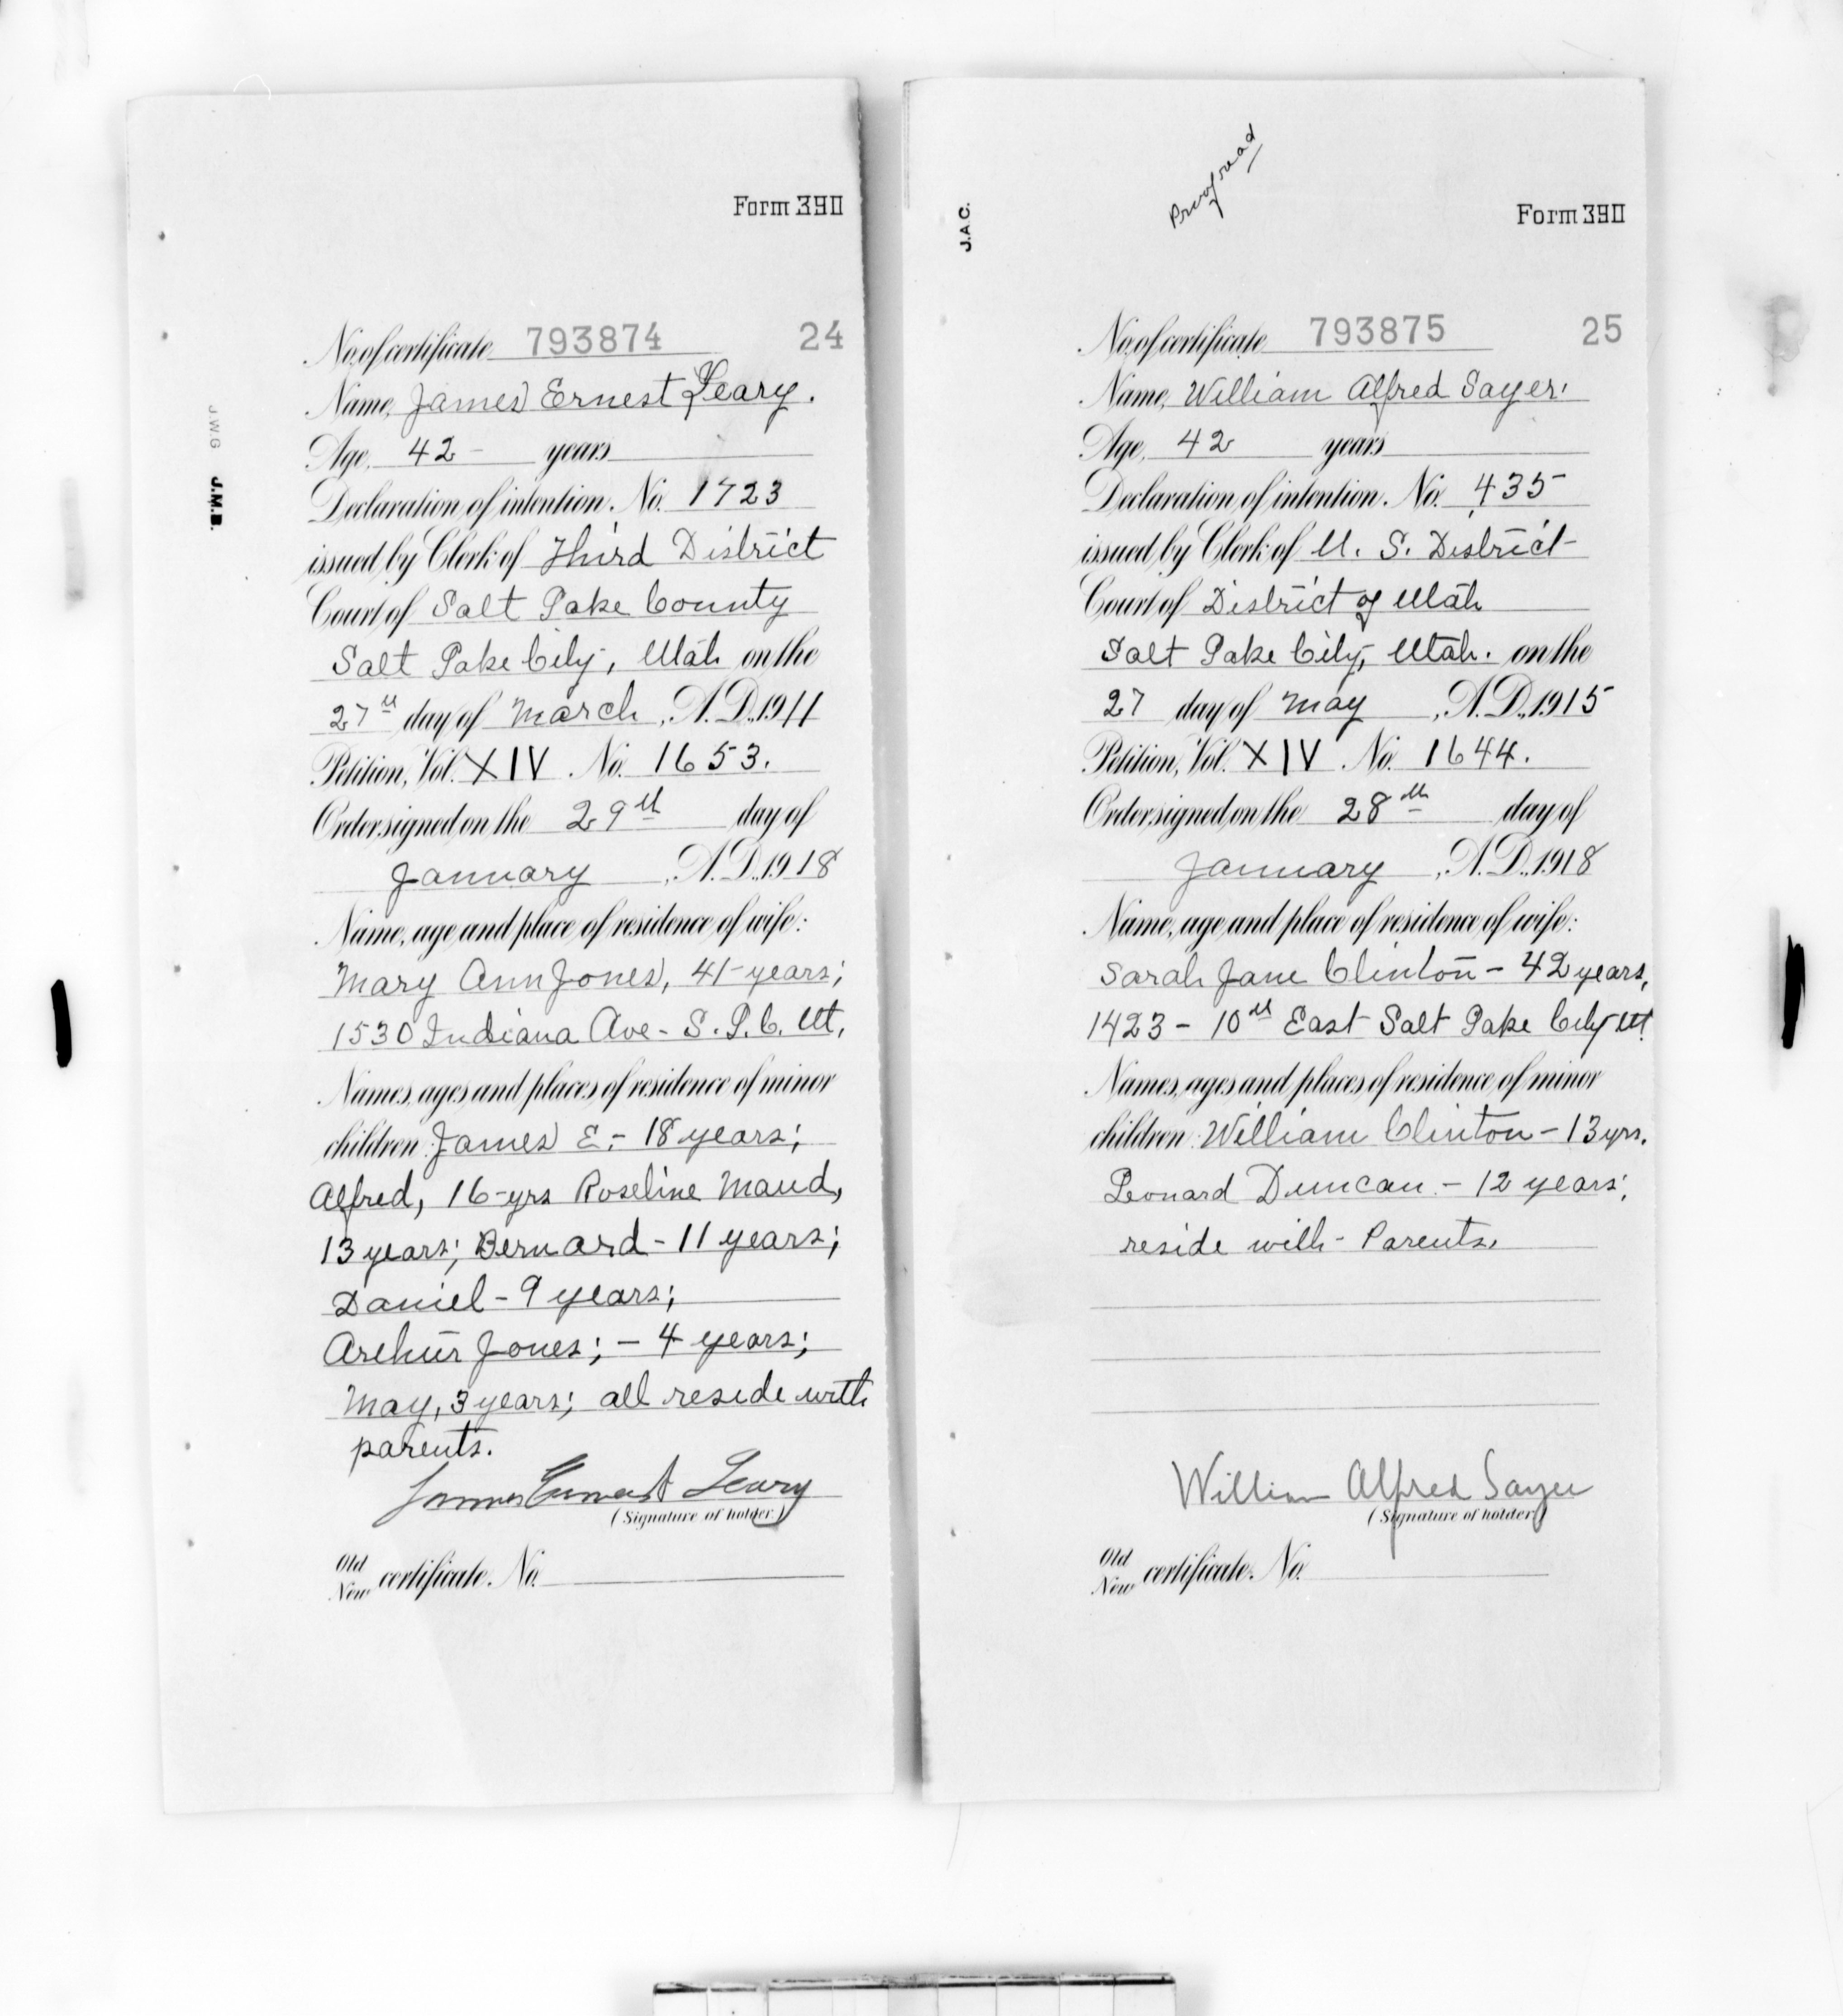 Form 390
No. of certificate 793874 24
Name, James Ernest Leary.
Age, 42 - years
Declaration of intention. No. 1723
issued by Clerk of Third District
Court of Salt Lake County
Salt Lake City, Utah on the
27th day of March, A.D., 1911
Petition, Vol. XIV. No. 1653.
Order signed on the 29th day of
January, A.D., 1918
Name, age and place of residence of wife:
Mary Ann Jones, 41-years;
1530 Indiana Ave- S.L.C. Ut,
Names, ages and places of residence of minor
children: James E,- 18 years;
Alfred, 16-yrs Roseline Maud,
13 years; Bernard - 11 years;
Daniel - 9 years;
Arthur Jones; - 4 years;
May, 3 years; all reside with
parents.
James Ernest Leary
(Signature of holder)
Old
New certificate. No.
J.W.G J.M.B.
Proofread
J.A.C.
Form 390
No. of certificate 793875 25
Name, William Alfred Sayer.
Age, 42 years
Declaration of intention. No. 435
issued by Clerk of U. S. District
Court of District of Utah
Salt Lake City, Utah. on the
27 day of May, A.D., 1915
Petition, Vol. XIV. No. 1644.
Order signed on the 28th day of
January, A.D., 1918
Name, age and place of residence of wife:
Sarah Jane Clinton - 42 years,
1423 - 10th East Salt Lake City Ut.
Names, ages and places of residence of minor
children: William Clinton - 13 yrs.
Leonard Duncan - 12 years;
reside with - Parents.
William Alfred Sayer
(Signature of holder)
Old
New certificate. No.